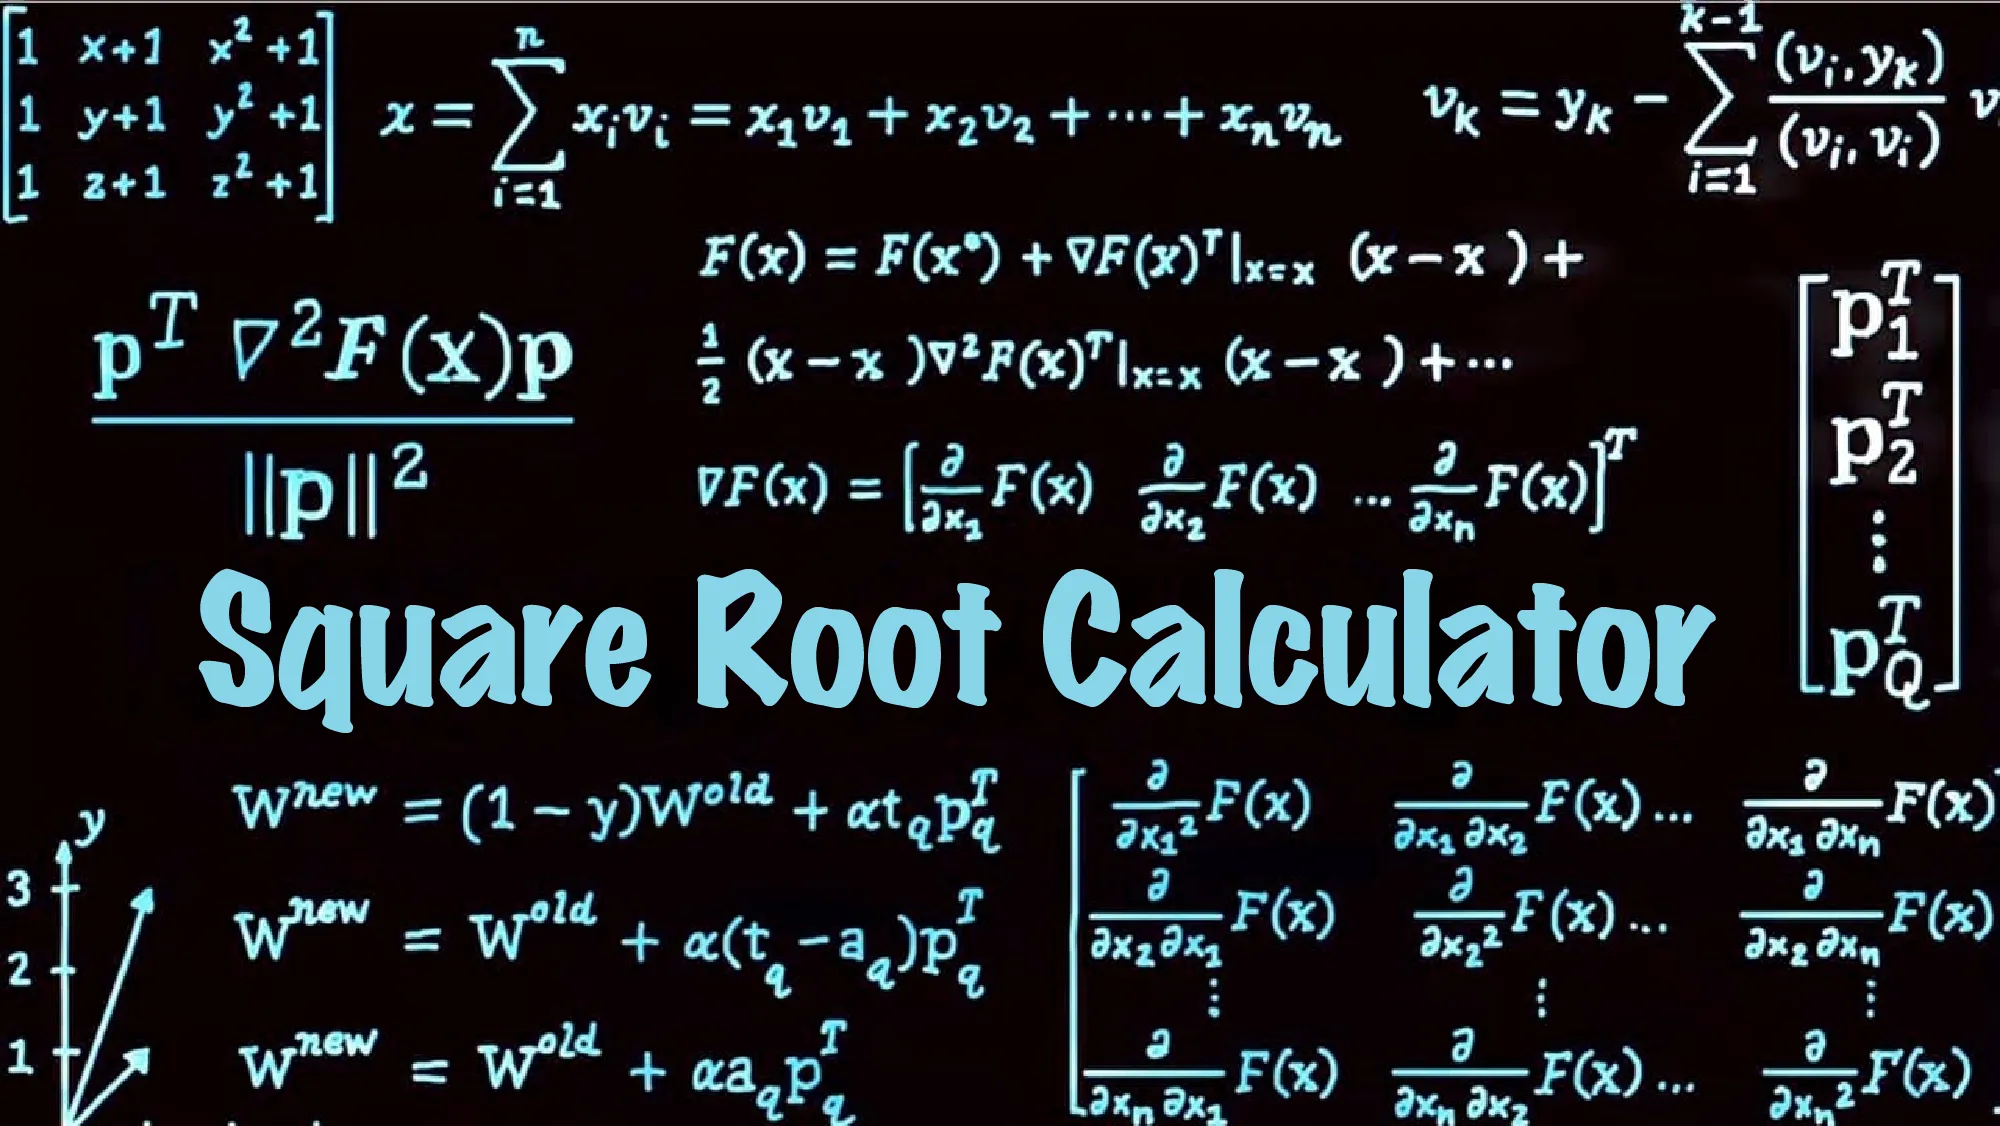 [1 x+1 x² +1
1 y+1 y² +1
1 z+1 z² +1]
x = ∑ⁿᵢ₌₁ xᵢvᵢ = x₁v₁ + x₂v₂ + ⋯ + xₙvₙ
vₖ = yₖ − ∑ᵏ⁻¹ᵢ₌₁ (vᵢ, yₖ) / (vᵢ, vᵢ) v
F(x) = F(x•) + ∇F(x)ᵀ|ₓ₌ₓ (x − x ) +
½ (x − x )∇²F(x)ᵀ|ₓ₌ₓ (x − x ) + ⋯
pᵀ ∇²F(x)p
||p||²
∇F(x) = [∂/∂x₁ F(x) ∂/∂x₂ F(x) ... ∂/∂xₙ F(x)]ᵀ
[p₁ᵀ
p₂ᵀ
⋮
p_Qᵀ]
Square Root Calculator
Wⁿᵉʷ = (1 − y)Wᵒˡᵈ + αt_q p_qᵀ
Wⁿᵉʷ = Wᵒˡᵈ + α(t_q − a_q)p_qᵀ
Wⁿᵉʷ = Wᵒˡᵈ + αa_q p_qᵀ
y
3
2
1
[∂/∂x₁² F(x) ∂/∂x₁ ∂x₂ F(x) ... ∂/∂x₁ ∂xₙ F(x)
∂/∂x₂ ∂x₁ F(x) ∂/∂x₂² F(x) ... ∂/∂x₂ ∂xₙ F(x)
⋮ ⋮ ⋮
∂/∂xₙ ∂x₁ F(x) ∂/∂xₙ ∂x₂ F(x) ... ∂/∂xₙ² F(x)